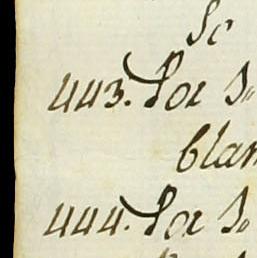 So
443. Por S.
blan
444. Por S.